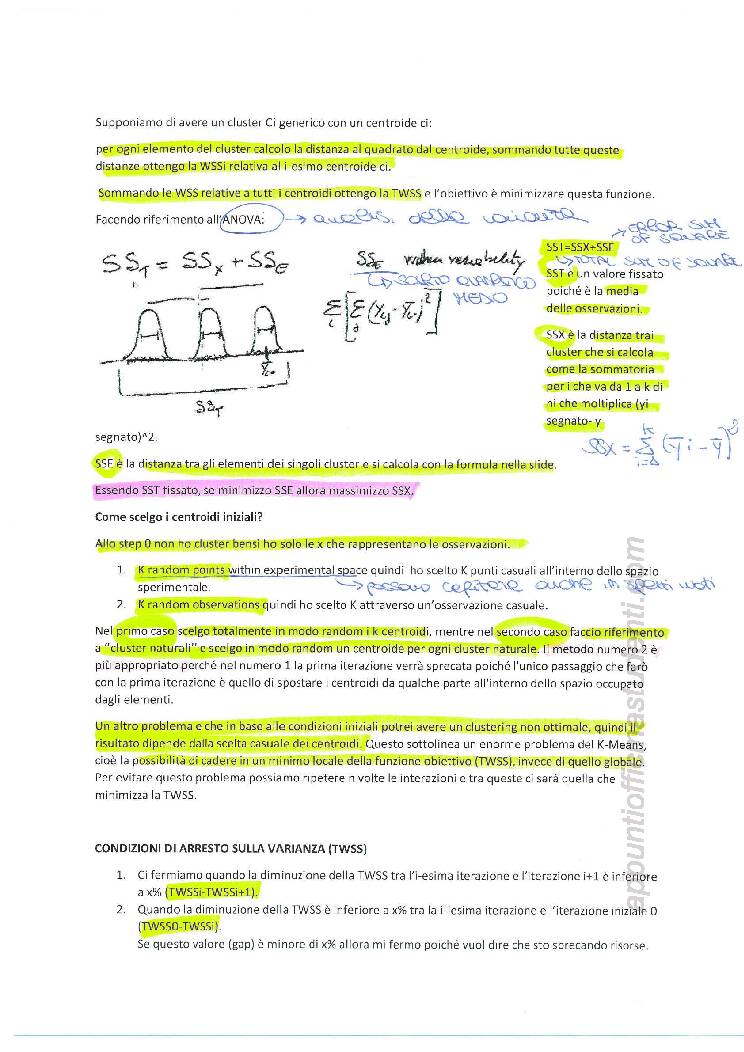 Supponiamo di avere un cluster Ci generico con un centroide ci:
per ogni elemento del cluster calcolo la distanza al quadrato dal centroide, sommando tutte queste
distanze ottengo la WSSi relativa al i-esimo centroide ci.
Sommando le WSS relative a tutti i centroidi ottengo la TWSS e l'obiettivo è minimizzare questa funzione.
Facendo riferimento all'ANOVA: → analisi della varianza
SS_T = SS_X + SS_E
SS_E within variability
→ scarto quadratico
medio
Σ_i [Σ_j (Y_ij - Y̅_i.)^2]
Y̅_i.
SS_T
→ ERROR SUM
OF SQUARE
SST=SSX+SSE
→ TOTAL SUM OF SQUARE
SST è un valore fissato
poiché è la media
delle osservazioni.
SSX è la distanza trai
cluster che si calcola
come la sommatoria
per i che va da 1 a k di
ni che moltiplica (yi
segnato- y
segnato)^2.
SSX = Σ_{i=1}^{k} (y̅i - y̅)^2
SSE è la distanza tra gli elementi dei singoli cluster e si calcola con la formula nella slide.
Essendo SST fissato, se minimizzo SSE allora massimizzo SSX.
Come scelgo i centroidi iniziali?
Allo step 0 non ho cluster bensì ho solo le x che rappresentano le osservazioni.
1. K random points within experimental space quindi ho scelto K punti casuali all'interno dello spazio
sperimentale. → possono capitare anche in spazi vuoti
2. K random observations quindi ho scelto K attraverso un'osservazione casuale.
Nel primo caso scelgo totalmente in modo random i k centroidi, mentre nel secondo caso faccio riferimento
a "cluster naturali" e scelgo in modo random un centroide per ogni cluster naturale. Il metodo numero 2 è
più appropriato perché nel numero 1 la prima iterazione verrà sprecata poiché l'unico passaggio che farò
con la prima iterazione è quello di spostare i centroidi da qualche parte all'interno dello spazio occupato
dagli elementi.
Un altro problema è che in base alle condizioni iniziali potrei avere un clustering non ottimale, quindi il
risultato dipende dalla scelta casuale dei centroidi. Questo sottolinea un enorme problema del K-Means,
cioè la possibilità di cadere in un minimo locale della funzione obiettivo (TWSS), invece di quello globale.
Per evitare questo problema possiamo ripetere n volte le interazioni e tra queste ci sarà quella che
minimizza la TWSS.
CONDIZIONI DI ARRESTO SULLA VARIANZA (TWSS)
1. Ci fermiamo quando la diminuzione della TWSS tra l'i-esima iterazione e l'iterazione i+1 è inferiore
a x% (TWSSi-TWSSi+1).
2. Quando la diminuzione della TWSS è inferiore a x% tra la i-iesima iterazione e l'iterazione iniziale 0
(TWSS0-TWSSi).
Se questo valore (gap) è minore di x% allora mi fermo poiché vuol dire che sto sprecando risorse.
appuntiofficinastudenti.com